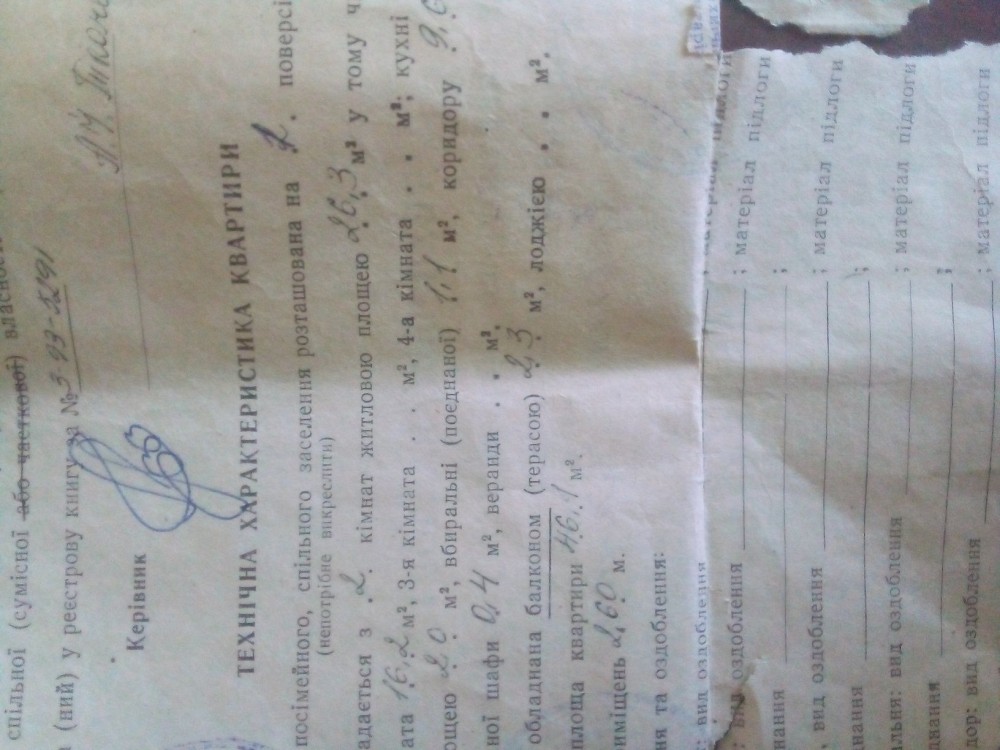 спільної (сумісної або часткової) власнос
(ний) у реєстрову книгу за № 3-93-5291
Керівник
ТЕХНІЧНА ХАРАКТЕРИСТИКА КВАРТИРИ
посімейного, спільного заселення розташована на 2. поверсі
(непотрібне викреслити)
адається з .2. кімнат житловою площею 26,3 м² у тому ч
ата 16.2 м², 3-я кімната . м², 4-а кімната . . м²; кухні
ощею 2.0 м², вбиральні (поєднаної) 1,1 м², коридору 9.
ної шафи 0,4 м², веранди . м².
обладнана балконом (терасою) 2,3 м², лоджією . . м².
площа квартири 46.1 м².
иміщень 2.60 м.
ня та оздоблення:
: вид оздоблення ; матеріал підлоги
: вид оздоблення ; матеріал підлоги
нання ;
вид оздоблення ; матеріал підлоги
нання ;
льня: вид оздоблення ; матеріал підлоги
днання ;
дор: вид оздоблення ; матеріал підлоги